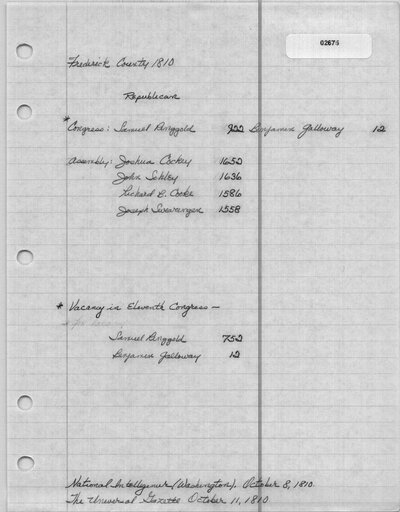 02675
Frederick County 1810
Republican
* Congress: Samuel Ringgold 922 Benjamin Galloway 12
Assembly: Joshua Cockey 1652
John Schley 1636
Richard B. Cooke 1586
Joseph Swearingen 1558
* Vacancy in Eleventh Congress —
Samuel Ringgold 752
Benjamin Galloway 12
National Intelligencer (Washington). October 8, 1810.
The Universal Gazette October 11, 1810